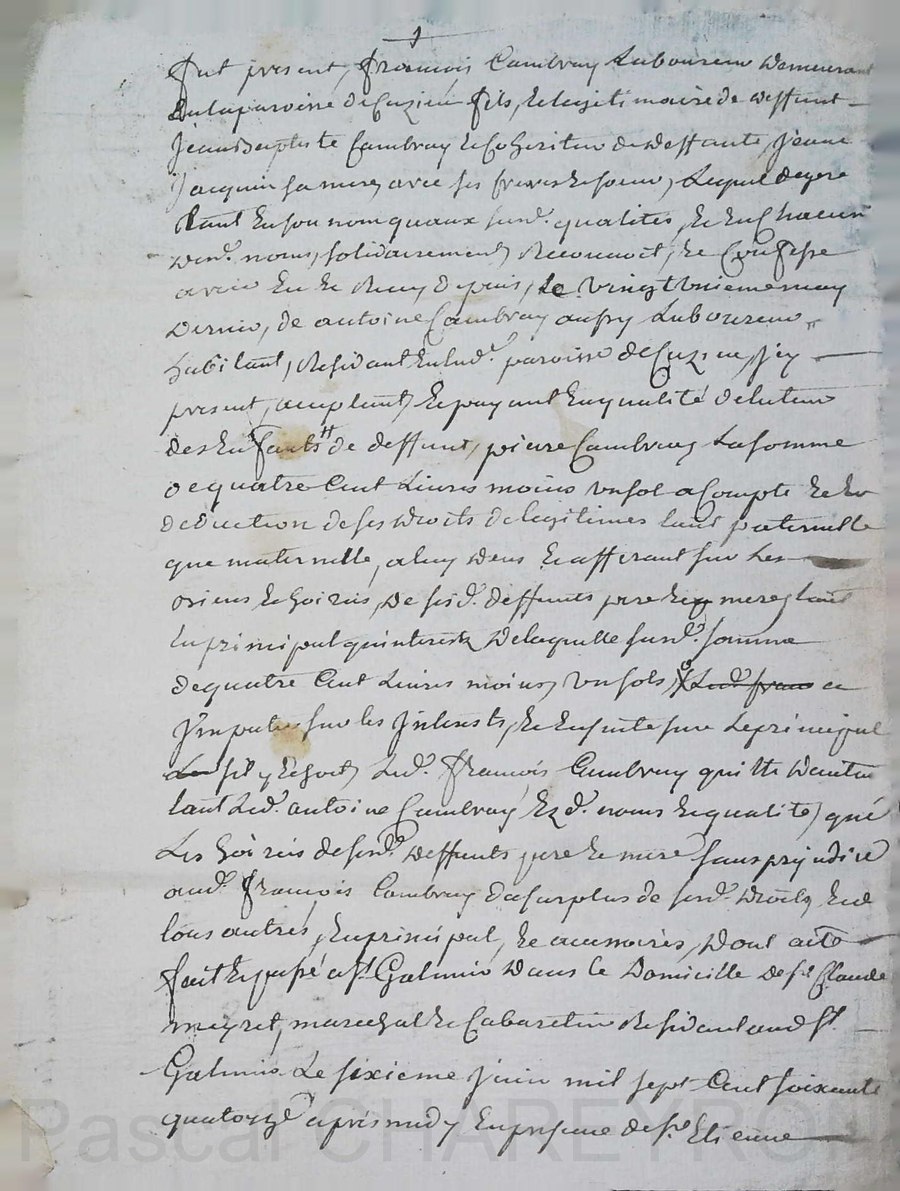 fut present, françois Cambray Laboureur demeurant
en la paroisse de Cuzieu fils, et legitimaire de deffunt
Jean Baptiste Cambray et Coheritier de deffunte, Jeane
Jacquin sa mere, avec ses freres et soeur, Lequel de gré
tant en son nom quaux susd. qualités, et en Chacun
desd. noms, solidairement, Reconnoit, et Confesse
avoir eu et Recu depuis, Le vingt unieme may
dernier, de antoine Cambray aussy Laboureur
habitant, Residant en lad. paroisse de Cuzieu, Jcy
present, acceptant, et payant en qualité de tuteur
des Enfants de deffunt, pierre Cambray La somme
de quatre Cent Livres moins un sol a Compte et en
deduction de ses droits de legitimes tant paternelle
que maternelle, a luy deus et afferant sur Les
biens et hoiries, de sesd. deffunts pere et mere, tant
en principal quinterets de laquelle susd. somme
de quatre Cent Livres moins, un sols, Led. franc ce
Jmpute sur les Jnterets, et Ensuite sur Le principal
sil y Echoit, Led. françois Cambray quitte d'autant
tant Led. antoine Cambray Ezd. noms et qualité, que
Les hoiries de sesd. deffunts pere et mere sans prejudice
aud. françois Cambray du surplus de sesd. droits, et de
tous autres, En principal, et accessoires, Dont acte
fait et passé a St. Galmier Dans le Domicille de sr. Claude
meyret, marechal et Cabaretier Residant aud. St.
Galmier Le sixieme Juin mil sept Cent soixante
quatorze apres midy En presence de sr. Etienne
Pascal CHAREYRON